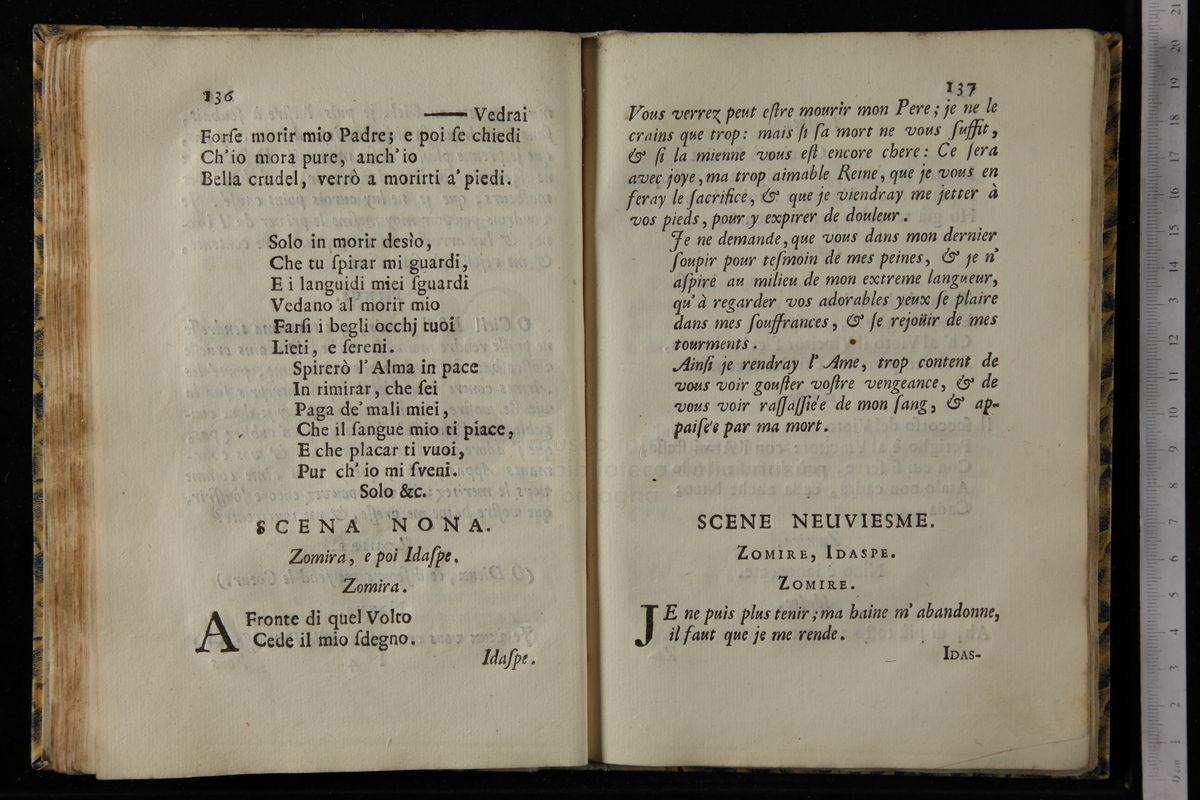 136
—— Vedrai
Forſe morir mio Padre; e poi ſe chiedi
Ch'io mora pure, anch'io
Bella crudel, verrò a morirti a' piedi.
Solo in morir desìo,
Che tu ſpirar mi guardi,
E i languidi miei ſguardi
Vedano al morir mio
Farſi i begli occhj tuoi
Lieti, e ſereni.
Spirerò l'Alma in pace
In rimirar, che ſei
Paga de' mali miei,
Che il ſangue mio ti piace,
E che placar ti vuoi,
Pur ch' io mi ſveni.
Solo &c.
SCENA NONA.
Zomira, e poi Idaſpe.
Zomira.
A Fronte di quel Volto
Cede il mio ſdegno.
Idaſpe.
137
Vous verrez peut eſtre mourir mon Pere; je ne le
crains que trop: mais ſi ſa mort ne vous ſuffit,
& ſi la mienne vous eſt encore chere: Ce ſera
avec joye, ma trop aimable Reine, que je vous en
feray le ſacrifice, & que je viendray me jetter à
vos pieds, pour y expirer de douleur.
Je ne demande, que vous dans mon dernier
ſoupir pour teſmoin de mes peines, & je n'
aſpire au milieu de mon extreme langueur,
qu'à regarder vos adorables yeux ſe plaire
dans mes ſouffrances, & ſe rejoüir de mes
tourments.
Ainſi je rendray l' Ame, trop content de
vous voir gouſter voſtre vengeance, & de
vous voir raſſaſſiée de mon ſang, & ap-
paiſée par ma mort.
SCENE NEUVIESME.
ZOMIRE, IDASPE.
ZOMIRE.
JE ne puis plus tenir; ma haine m' abandonne,
il faut que je me rende.
IDAS-